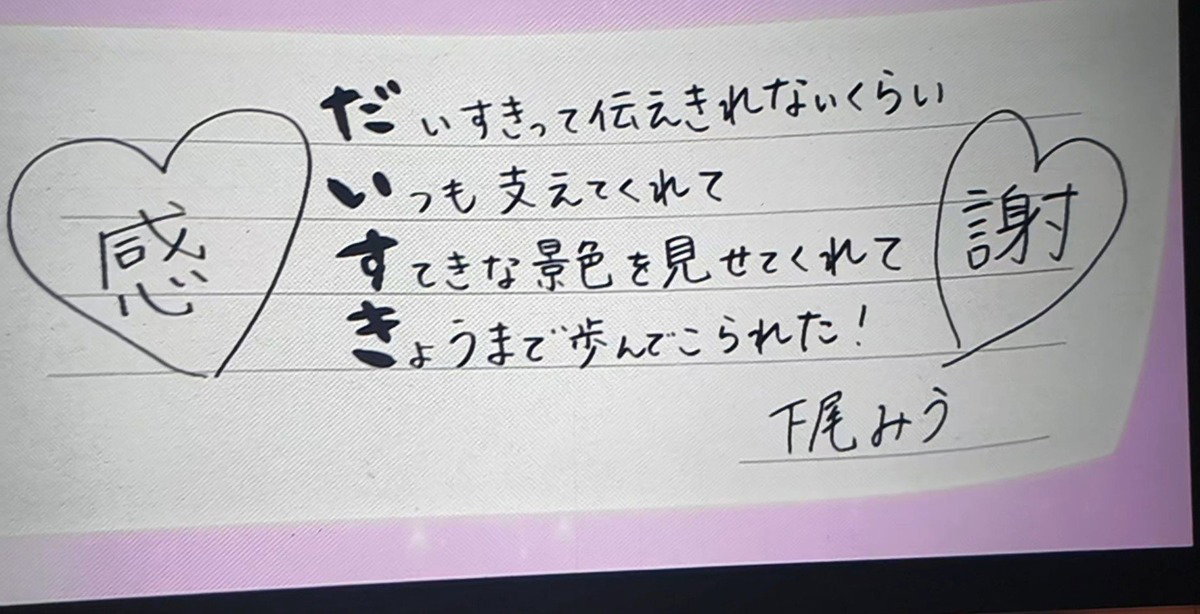 だいすきって伝えきれないくらい
いつも支えてくれて
すてきな景色を見せてくれて
きょうまで歩んでこられた!
感
謝
下尾みう